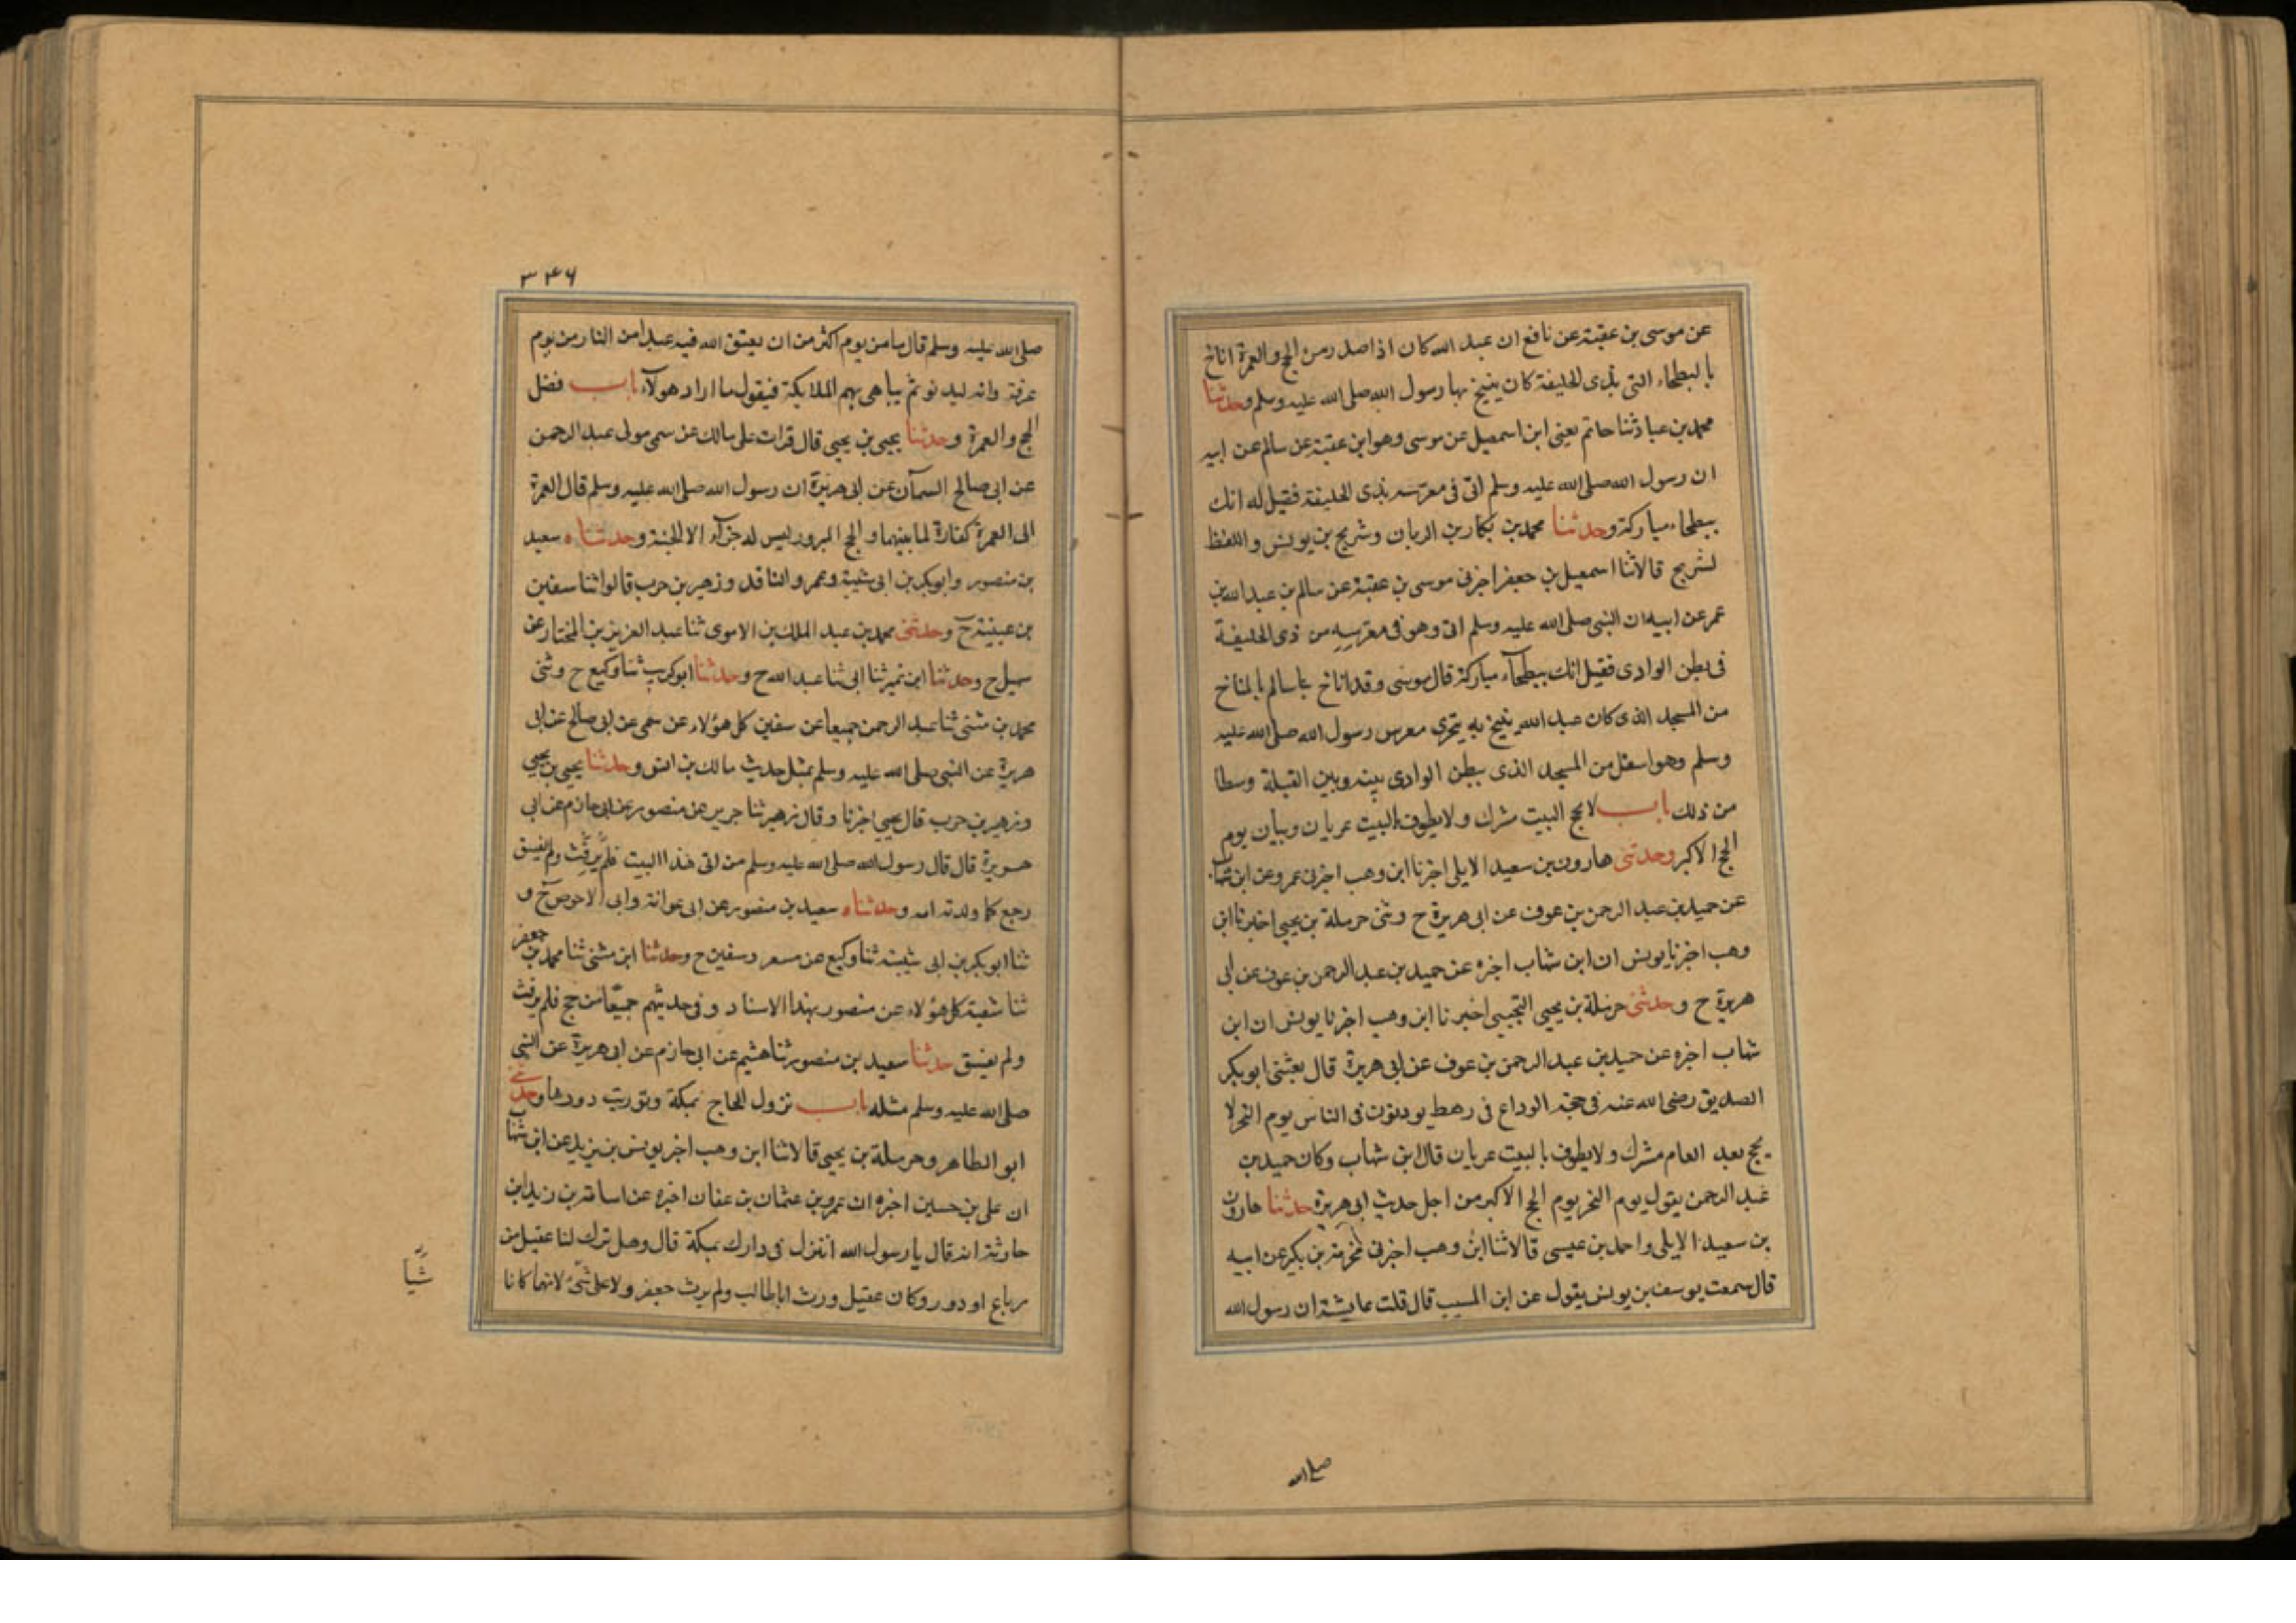 عن موسى بن عقبة عن نافع ان عبد الله كان اذا صدر من الحج والعمرة اناخ
بالبطحاء التى بذى الحليفة كان ينيخ بها رسول الله صلى الله عليه وسلم وحدثنا
محمد بن عباد ثنا حاتم يعنى ابن اسمعيل عن موسى وهو ابن عقبة عن سالم عن ابيه
ان رسول الله صلى الله عليه وسلم اتى فى معرسه بذى الحليفة فقيل له انك
ببطحاء مباركة وحدثنا محمد بن بكار بن الريان وشريح بن يونس واللفظ
لشريح قالا ثنا اسمعيل بن جعفر اخبرنى موسى بن عقبة عن سالم بن عبد الله بن
عمر عن ابيه ان النبى صلى الله عليه وسلم اتى وهو فى معرسه من ذى الحليفة
فى بطن الوادى فقيل انك ببطحآء مباركة قال موسى وقد اناخ بنا سالم بالمناخ
من المسجد الذى كان عبد الله ينيخ به يتحرى معرس رسول الله صلى الله عليه
وسلم وهو اسفل من المسجد الذى ببطن الوادى بينه وبين القبلة وسطا
من ذلك باب لا يحج البيت مشرك ولا يطوف بالبيت عريان وبيان يوم
الحج الاكبر وحدثنى هارون بن سعيد الايلى اخبرنا ابن وهب اخبرنى عمرو عن ابن شهاب
عن حميد بن عبد الرحمن بن عوف عن ابى هريرة ح وثنى حرملة بن يحيى اخبرنا ابن
وهب اخبرنا يونس ان ابن شهاب اخبره عن حميد بن عبد الرحمن بن عوف عن ابى
هريرة ح وحدثنى حرملة بن يحيى التجيبى اخبرنا ابن وهب اخبرنا يونس ان ابن
شهاب اخبره عن حميد بن عبد الرحمن بن عوف عن ابى هريرة قال بعثنى ابو بكر
الصديق رضى الله عنه فى حجة الوداع فى رهط يوذنون فى الناس يوم النحر لا
يحج بعد العام مشرك ولا يطوف بالبيت عريان قال ابن شهاب وكان حميد بن
عبد الرحمن يقول يوم النحر يوم الحج الاكبر من اجل حديث ابى هريرة حدثنا هارون
بن سعيد الايلى واحمد بن عيسى قالا ثنا ابن وهب اخبرنى مخرمة بن بكير عن ابيه
قال سمعت يوسف بن يونس يقول عن ابن المسيب قال قلت عايشة ان رسول الله
صلى الله
٣٤٦
صلى الله عليه وسلم قال ما من يوم اكثر من ان يعتق الله فيه عبدا من النار من يوم
عرفة وانه ليدنو ثم يباهى بهم الملايكة فيقول ما اراد هولآء باب فضل
الحج والعمرة وحدثنا يحيى بن يحيى قال قرات على مالك عن سمى مولى عبد الرحمن
عن ابى صالح السمآن عن ابى هريرة ان رسول الله صلى الله عليه وسلم قال العمرة
الى العمرة كفارة لما بينهما والحج المبرور ليس له جزآء الا الجنة وحدثناه سعيد
بن منصور وابو بكر بن ابى شيبة وعمرو الناقد وزهير بن حرب قالوا ثنا سفين
بن عيينة ح وحدثنى محمد بن عبد الملك بن الاموى ثنا عبد العزيز بن المختار عن
سهيل ح وحدثنا ابن نمير ثنا ابى ثنا عبد الله ح وحدثنا ابو كريب ثنا وكيع ح وثنى
محمد بن مثنى ثنا عبد الرحمن جميعا عن سفين كل هؤلاء عن سمى عن ابى صالح عن ابى
هريرة عن النبى صلى الله عليه وسلم بمثل حديث مالك بن انس وحدثنا يحيى بن يحيى
وزهير بن حرب قال يحيى اخبرنا وقال زهير ثنا جرير عن منصور عن ابى حازم عن ابى
هريرة قال قال رسول الله صلى الله عليه وسلم من اتى هذا البيت فلم يرفث ولم يفسق
رجع كما ولدته امه وحدثناه سعيد بن منصور عن ابى عوانة وابى الاحوص ح و
ثنا ابو بكر بن ابى شيبة ثنا وكيع عن مسعر وسفين ح وحدثنا ابن مثنى ثنا محمد بن جعفر
ثنا شعبة كل هؤلاء عن منصور بهذا الاسناد وفى حديثهم جميعا من حج فلم يرفث
ولم يفسق حدثنا سعيد بن منصور ثنا هشيم عن ابى حازم عن ابى هريرة عن النبى
صلى الله عليه وسلم مثله باب نزول الحاج بمكة وتوريث دورها وحدثنى
ابو الطاهر وحرملة بن يحيى قالا ثنا ابن وهب اخبر يونس بن يزيد عن ابن شهاب
ان على بن حسين اخبره ان عمرو بن عثمان بن عفان اخبره عن اسامة بن زيد ابن
حارثة انه قال يا رسول الله اتنزل فى دارك بمكة قال وهل ترك لنا عقيل من
رباع او دور وكان عقيل ورث اباطالب ولم يرث جعفر ولا على شىء لانهما كانا
شيا